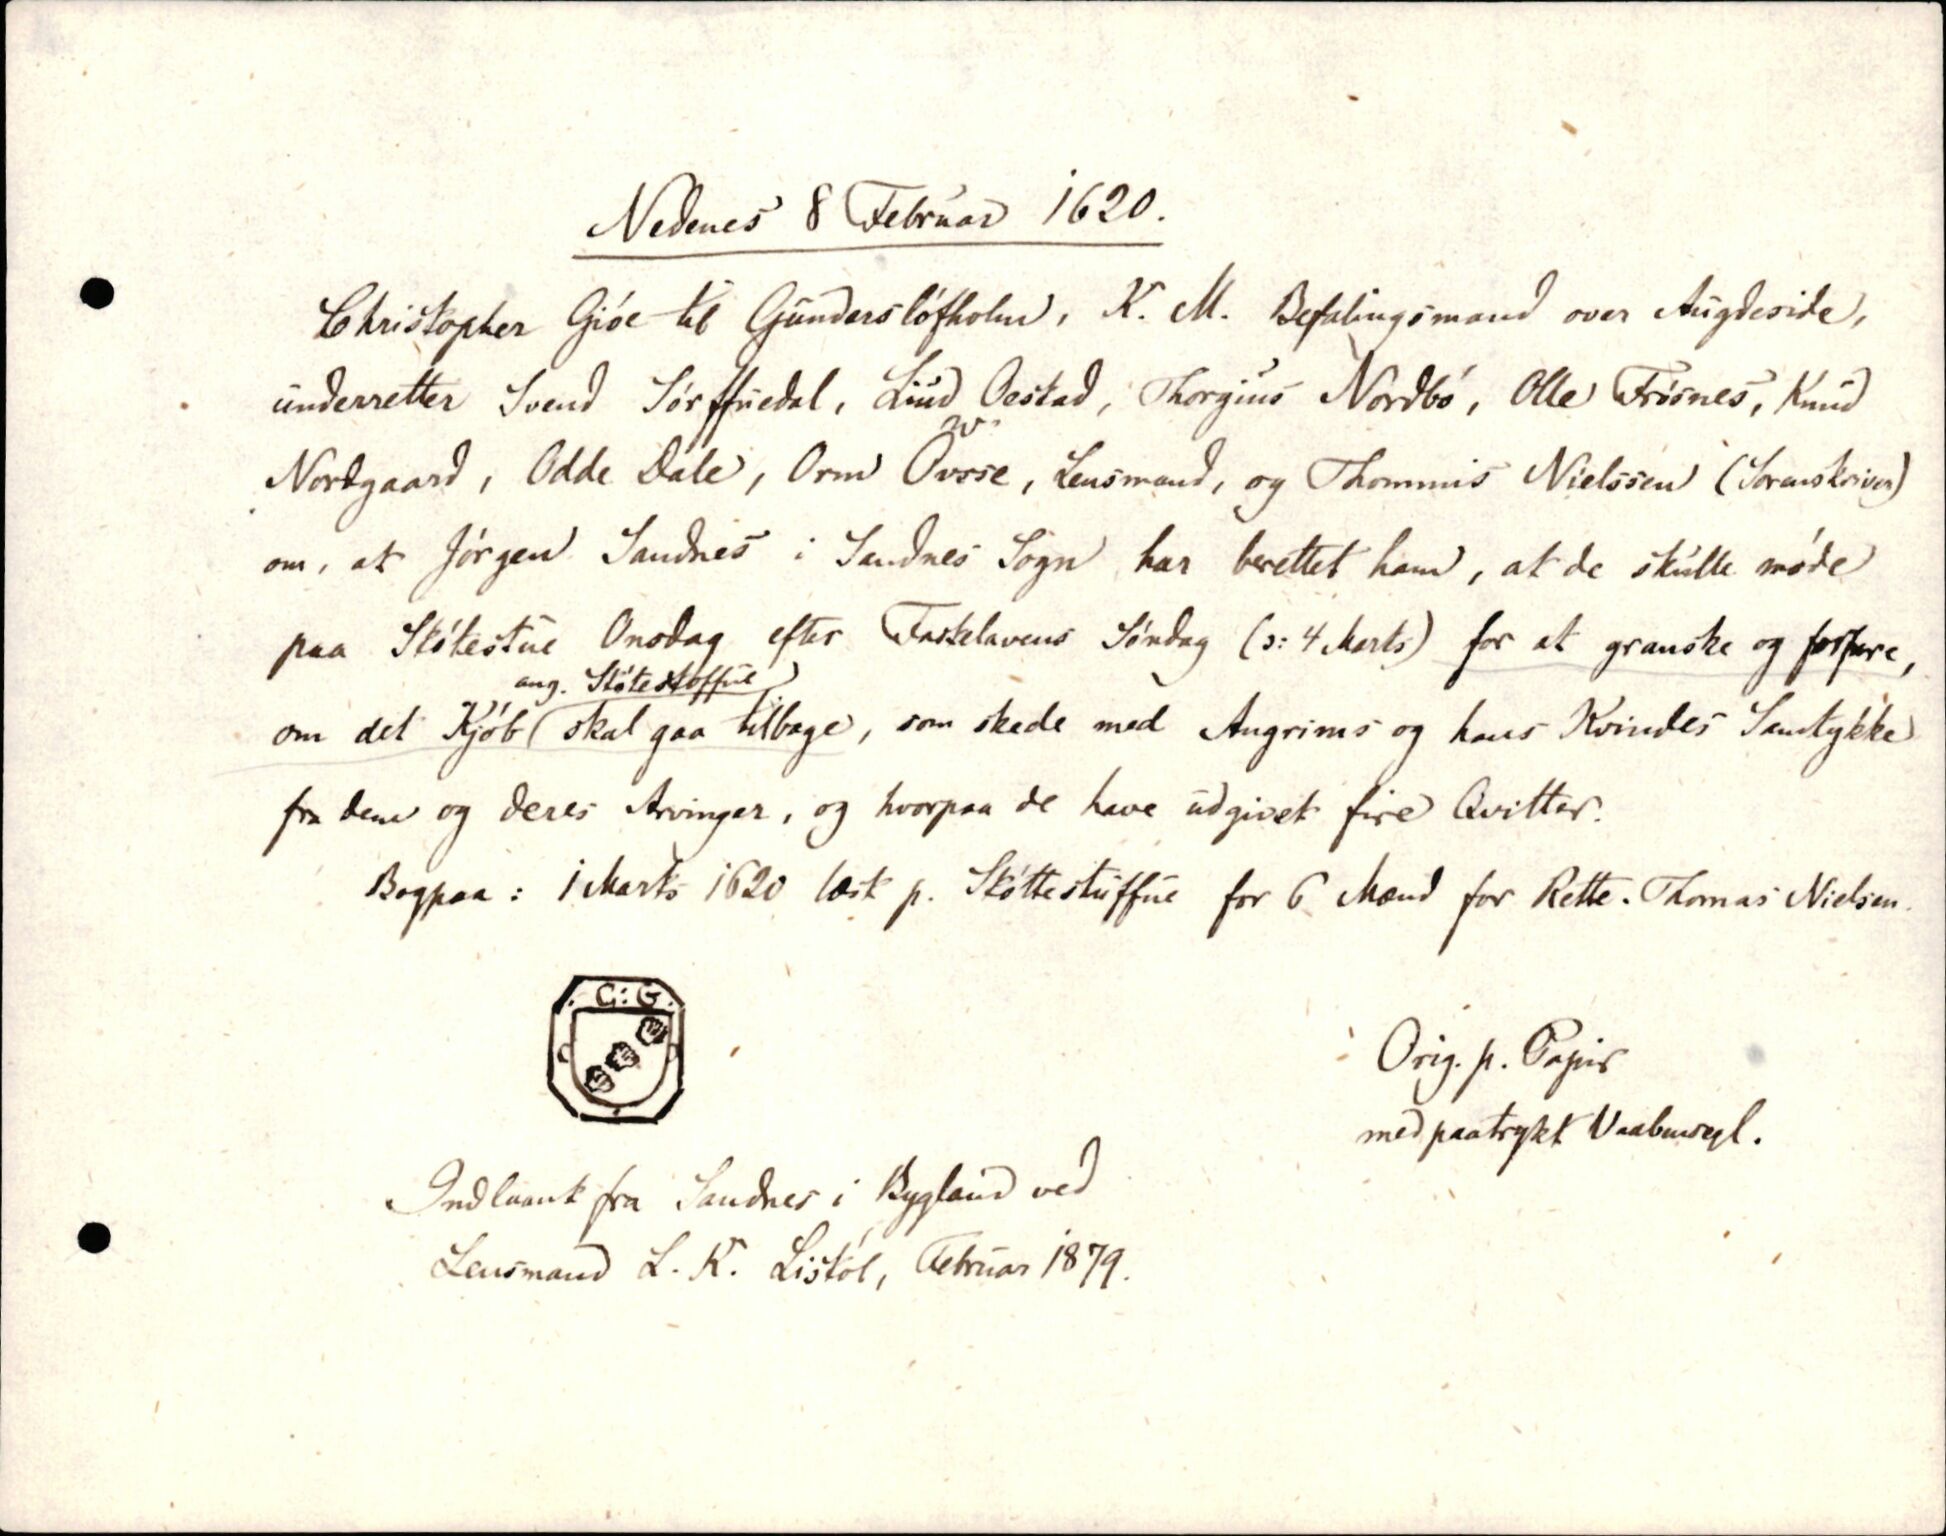 Nedenes 8 Februar 1620.
Christopher Gióe til Gunderslófholm, K. M. Befalingsmand over Augdeside,
underretter Svend Sórffuedal, Liud Oestad, Thorgius Nordbó, Olle Frósnes, Knud
Nordgaard, Odde Dale, Orm Óvsse, Lensmand, og Thommis Nielssen (Sorenskriver)
om, at Jórgen Sandnes i Sandnes Sogn har berettet ham, at de skulle móde
paa Skótestue Onsdag efter Fastelavens Sóndag (ɔ: 4 Marts) for at granske og forfare,
ang. Skótestoffue
om det Kjób skal gaa tilbage, som skede med Angrims og hans Kvindes Samtykke
fra dem og deres Arvinger, og hvorpaa de have udgivet fire Qvitter.
Bagpaa: 1 Marts 1620 læst p. Skóttestuffue for 6 Mænd for Rette. Thomas Nielsen.
C:G.
Orig. p. Papir
med paatrykt Vaabensegl.
Indlaant fra Sandnes i Bygland ved
Lensmand L. K. Listól, Februar 1879.